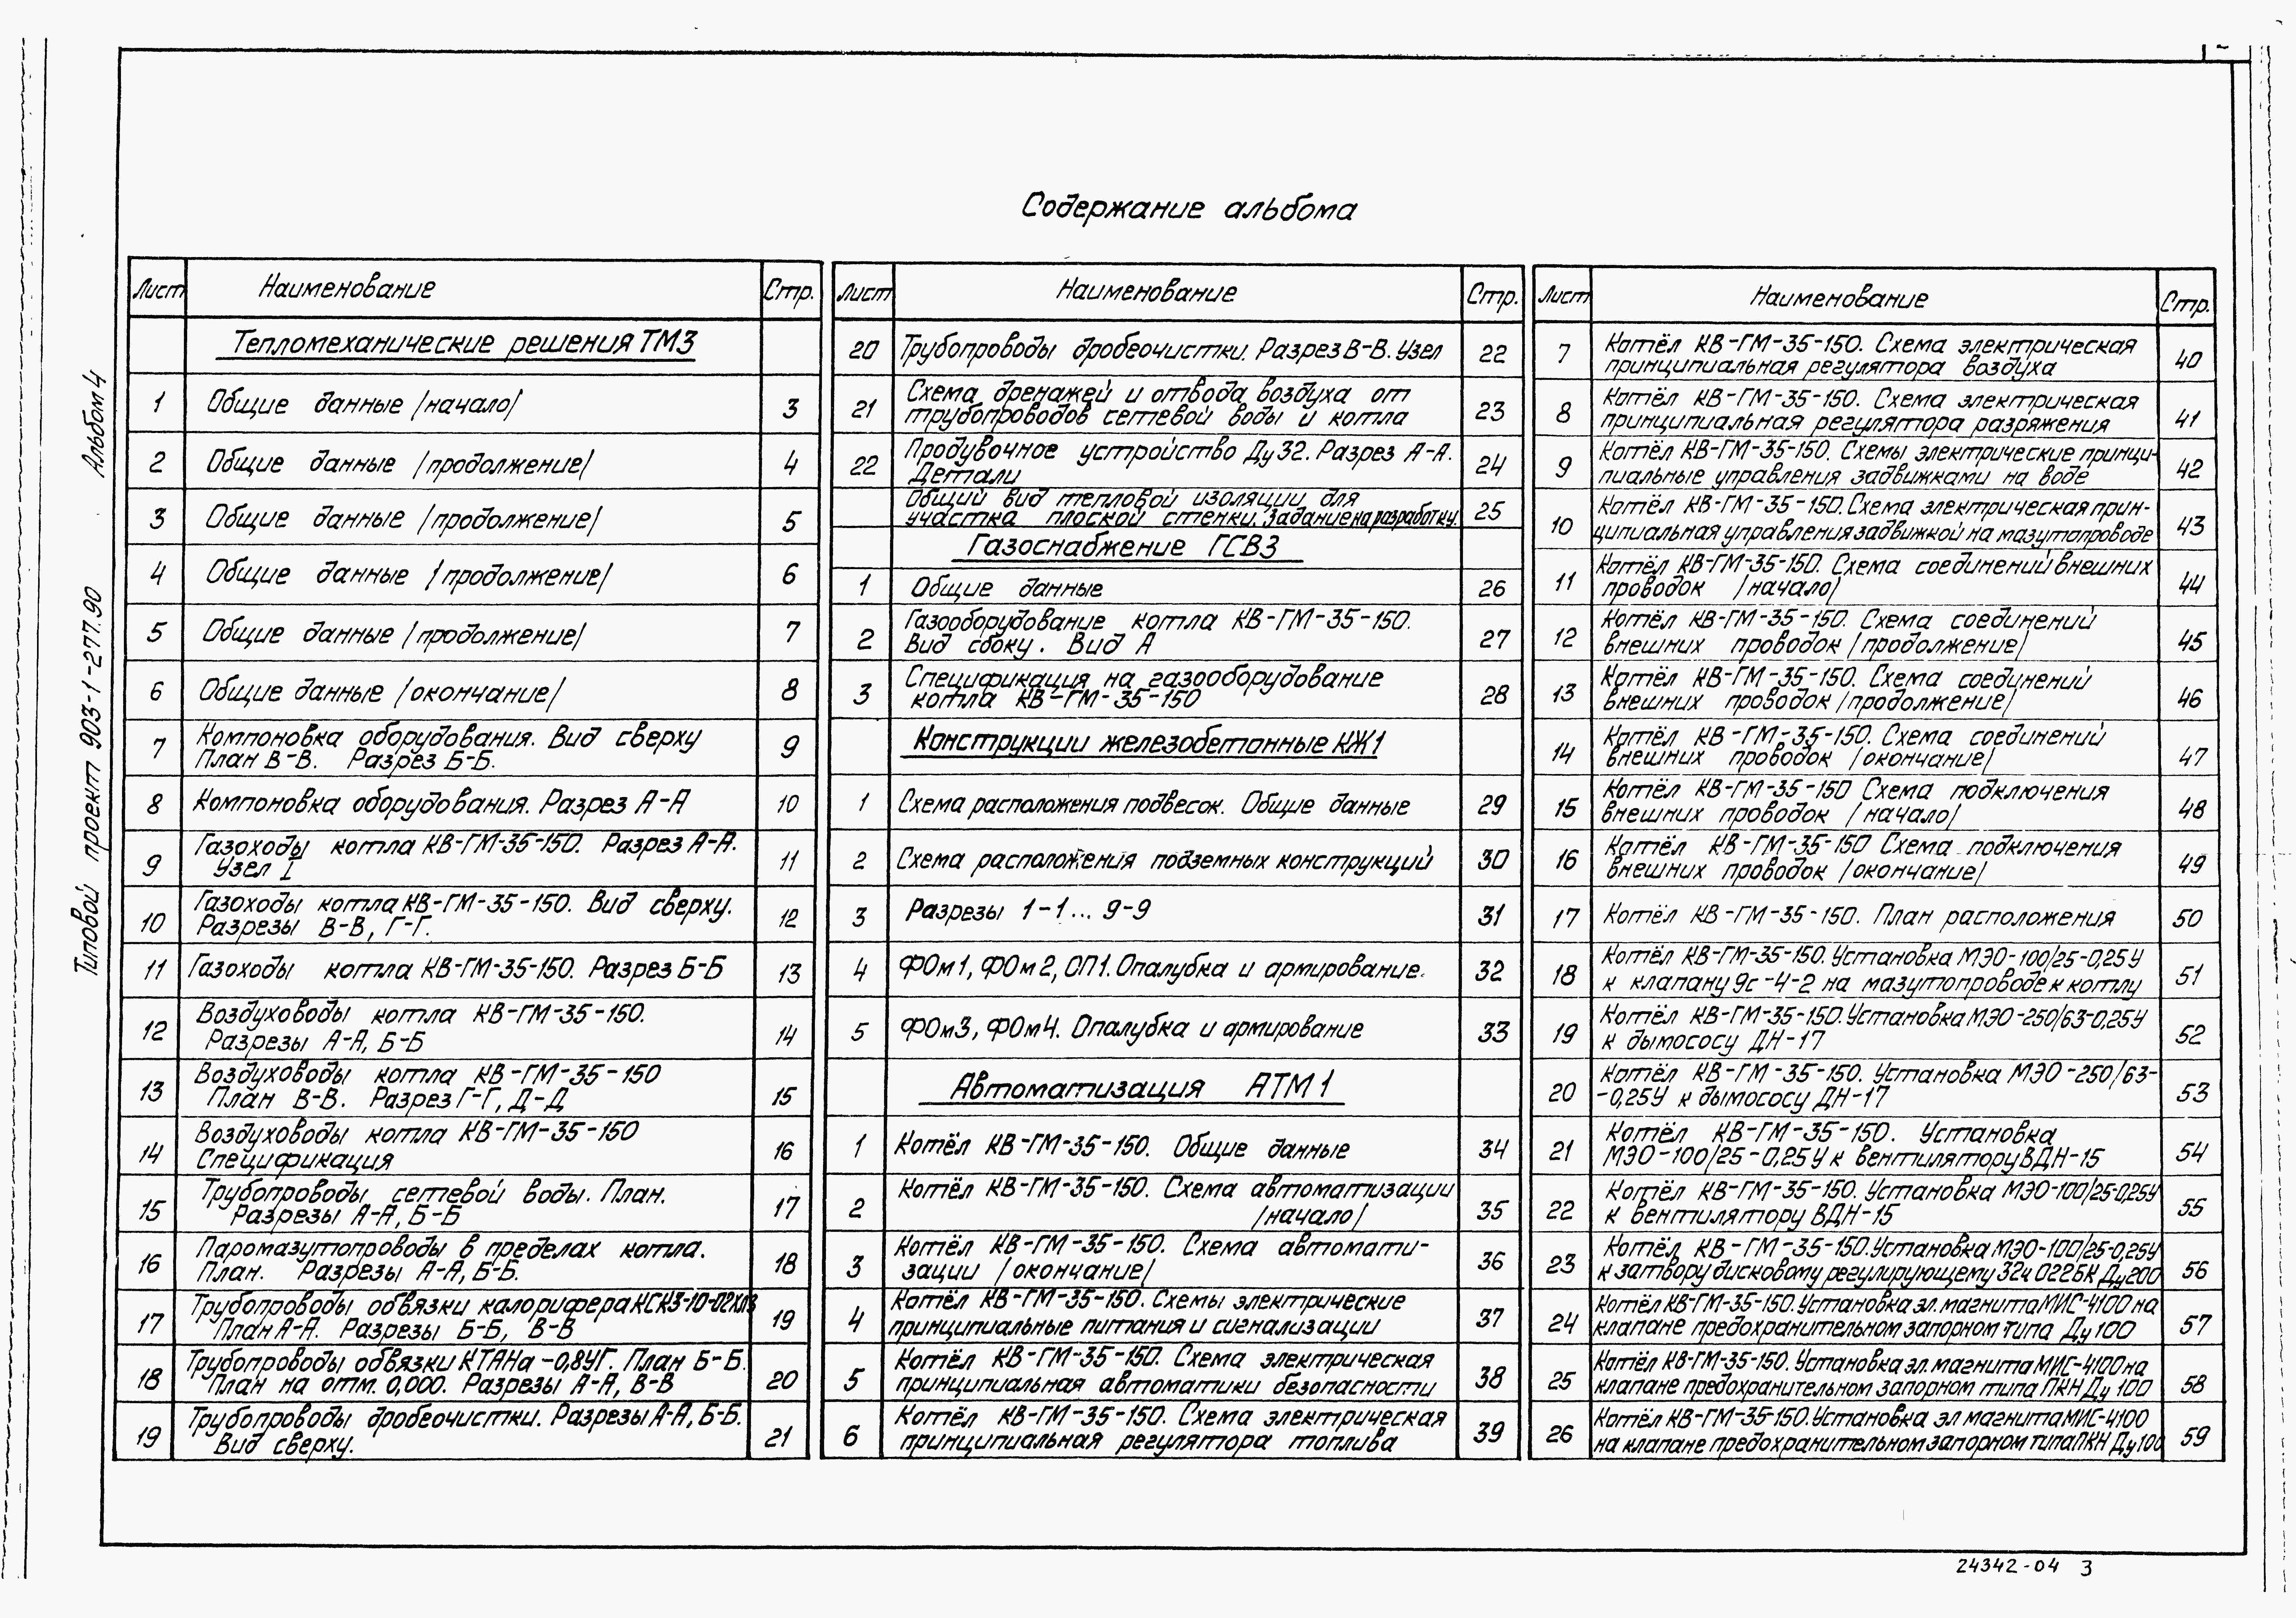 Содержание альбома
Типовой проект 903-1-277.90 Альбом 4
Лист Наименование Стр.
Тепломеханические решения ТМ3
1 Общие данные /начало/ 3
2 Общие данные /продолжение/ 4
3 Общие данные /продолжение/ 5
4 Общие данные /продолжение/ 6
5 Общие данные /продолжение/ 7
6 Общие данные /окончание/ 8
7 Компоновка оборудования. Вид сверху 9
План В-В. Разрез Б-Б.
8 Компоновка оборудования. Разрез А-А 10
9 Газоходы котла КВ-ГМ-35-150. Разрез А-А. 11
Узел I
10 Газоходы котла КВ-ГМ-35-150. Вид сверху. 12
Разрезы В-В, Г-Г.
11 Газоходы котла КВ-ГМ-35-150. Разрез Б-Б 13
12 Воздуховоды котла КВ-ГМ-35-150. 14
Разрезы А-А, Б-Б
13 Воздуховоды котла КВ-ГМ-35-150 15
План В-В. Разрез Г-Г, Д-Д
14 Воздуховоды котла КВ-ГМ-35-150 16
Спецификация
15 Трубопроводы сетевой воды. План. 17
Разрезы А-А, Б-Б
16 Паромазутопроводы в пределах котла. 18
План. Разрезы А-А, Б-Б.
17 Трубопроводы обвязки калорифера КСК3-10-02ХЛ3 19
План А-А. Разрезы Б-Б, В-В
18 Трубопроводы обвязки КТАНа-0,8УГ. План Б-Б. 20
План на отм. 0,000. Разрезы А-А, В-В
19 Трубопроводы дробеочистки. Разрезы А-А, Б-Б. 21
Вид сверху.
Лист Наименование Стр.
20 Трубопроводы дробеочистки. Разрез В-В. Узел 22
21 Схема дренажей и отвода воздуха от 23
трубопроводов сетевой воды и котла
22 Продувочное устройство Ду 32. Разрез А-А. 24
Детали
Общий вид тепловой изоляции для 25
участка плоской стенки. Задание на разработку.
Газоснабжение ГСВ3
1 Общие данные 26
2 Газооборудование котла КВ-ГМ-35-150. 27
Вид сбоку. Вид А
3 Спецификация на газооборудование 28
котла КВ-ГМ-35-150
Конструкции железобетонные КЖ1
1 Схема расположения подвесок. Общие данные 29
2 Схема расположения подземных конструкций 30
3 Разрезы 1-1... 9-9 31
4 ФОм1, ФОм2, ОП1. Опалубка и армирование. 32
5 ФОм3, ФОм4. Опалубка и армирование 33
Автоматизация АТМ1
1 Котёл КВ-ГМ-35-150. Общие данные 34
2 Котёл КВ-ГМ-35-150. Схема автоматизации 35
/начало/
3 Котёл КВ-ГМ-35-150. Схема автомати- 36
зации /окончание/
4 Котёл КВ-ГМ-35-150. Схемы электрические 37
принципиальные питания и сигнализации
5 Котёл КВ-ГМ-35-150. Схема электрическая 38
принципиальная автоматики безопасности
6 Котёл КВ-ГМ-35-150. Схема электрическая 39
принципиальная регулятора топлива
Лист Наименование Стр.
7 Котёл КВ-ГМ-35-150. Схема электрическая 40
принципиальная регулятора воздуха
8 Котёл КВ-ГМ-35-150. Схема электрическая 41
принципиальная регулятора разряжения
9 Котёл КВ-ГМ-35-150. Схемы электрические принци- 42
пиальные управления задвижками на воде
10 Котёл КВ-ГМ-35-150. Схема электрическая прин- 43
ципиальная управления задвижкой на мазутопроводе
11 Котёл КВ-ГМ-35-150. Схема соединений внешних 44
проводок /начало/
12 Котёл КВ-ГМ-35-150. Схема соединений 45
внешних проводок /продолжение/
13 Котёл КВ-ГМ-35-150. Схема соединений 46
внешних проводок /продолжение/
14 Котёл КВ-ГМ-35-150. Схема соединений 47
внешних проводок /окончание/
15 Котёл КВ-ГМ-35-150 Схема подключения 48
внешних проводок /начало/
16 Котёл КВ-ГМ-35-150 Схема подключения 49
внешних проводок /окончание/
17 Котёл КВ-ГМ-35-150. План расположения 50
18 Котёл КВ-ГМ-35-150. Установка МЭО-100/25-0,25У 51
к клапану 9с-4-2 на мазутопроводе к котлу
19 Котёл КВ-ГМ-35-150. Установка МЭО-250/63-0,25У 52
к дымососу ДН-17
20 Котёл КВ-ГМ-35-150. Установка МЭО-250/63- 53
-0,25У к дымососу ДН-17
21 Котёл КВ-ГМ-35-150. Установка 54
МЭО-100/25-0,25У к вентилятору ВДН-15
22 Котёл КВ-ГМ-35-150. Установка МЭО-100/25-0,25У 55
к вентилятору ВДН-15
23 Котёл КВ-ГМ-35-150. Установка МЭО-100/25-0,25У 56
к затвору дисковому регулирующему 32ч 022БК Ду200
24 Котёл КВ-ГМ-35-150. Установка эл. магнита МИС-4100 на 57
клапане предохранительном запорном типа Ду 100
25 Котёл КВ-ГМ-35-150. Установка эл. магнита МИС-4100 на 58
клапане предохранительном запорном типа ПКН Ду 100
26 Котёл КВ-ГМ-35-150. Установка эл магнита МИС-4100 59
на клапане предохранительном запорном типа ПКН Ду 100
24342-04 3